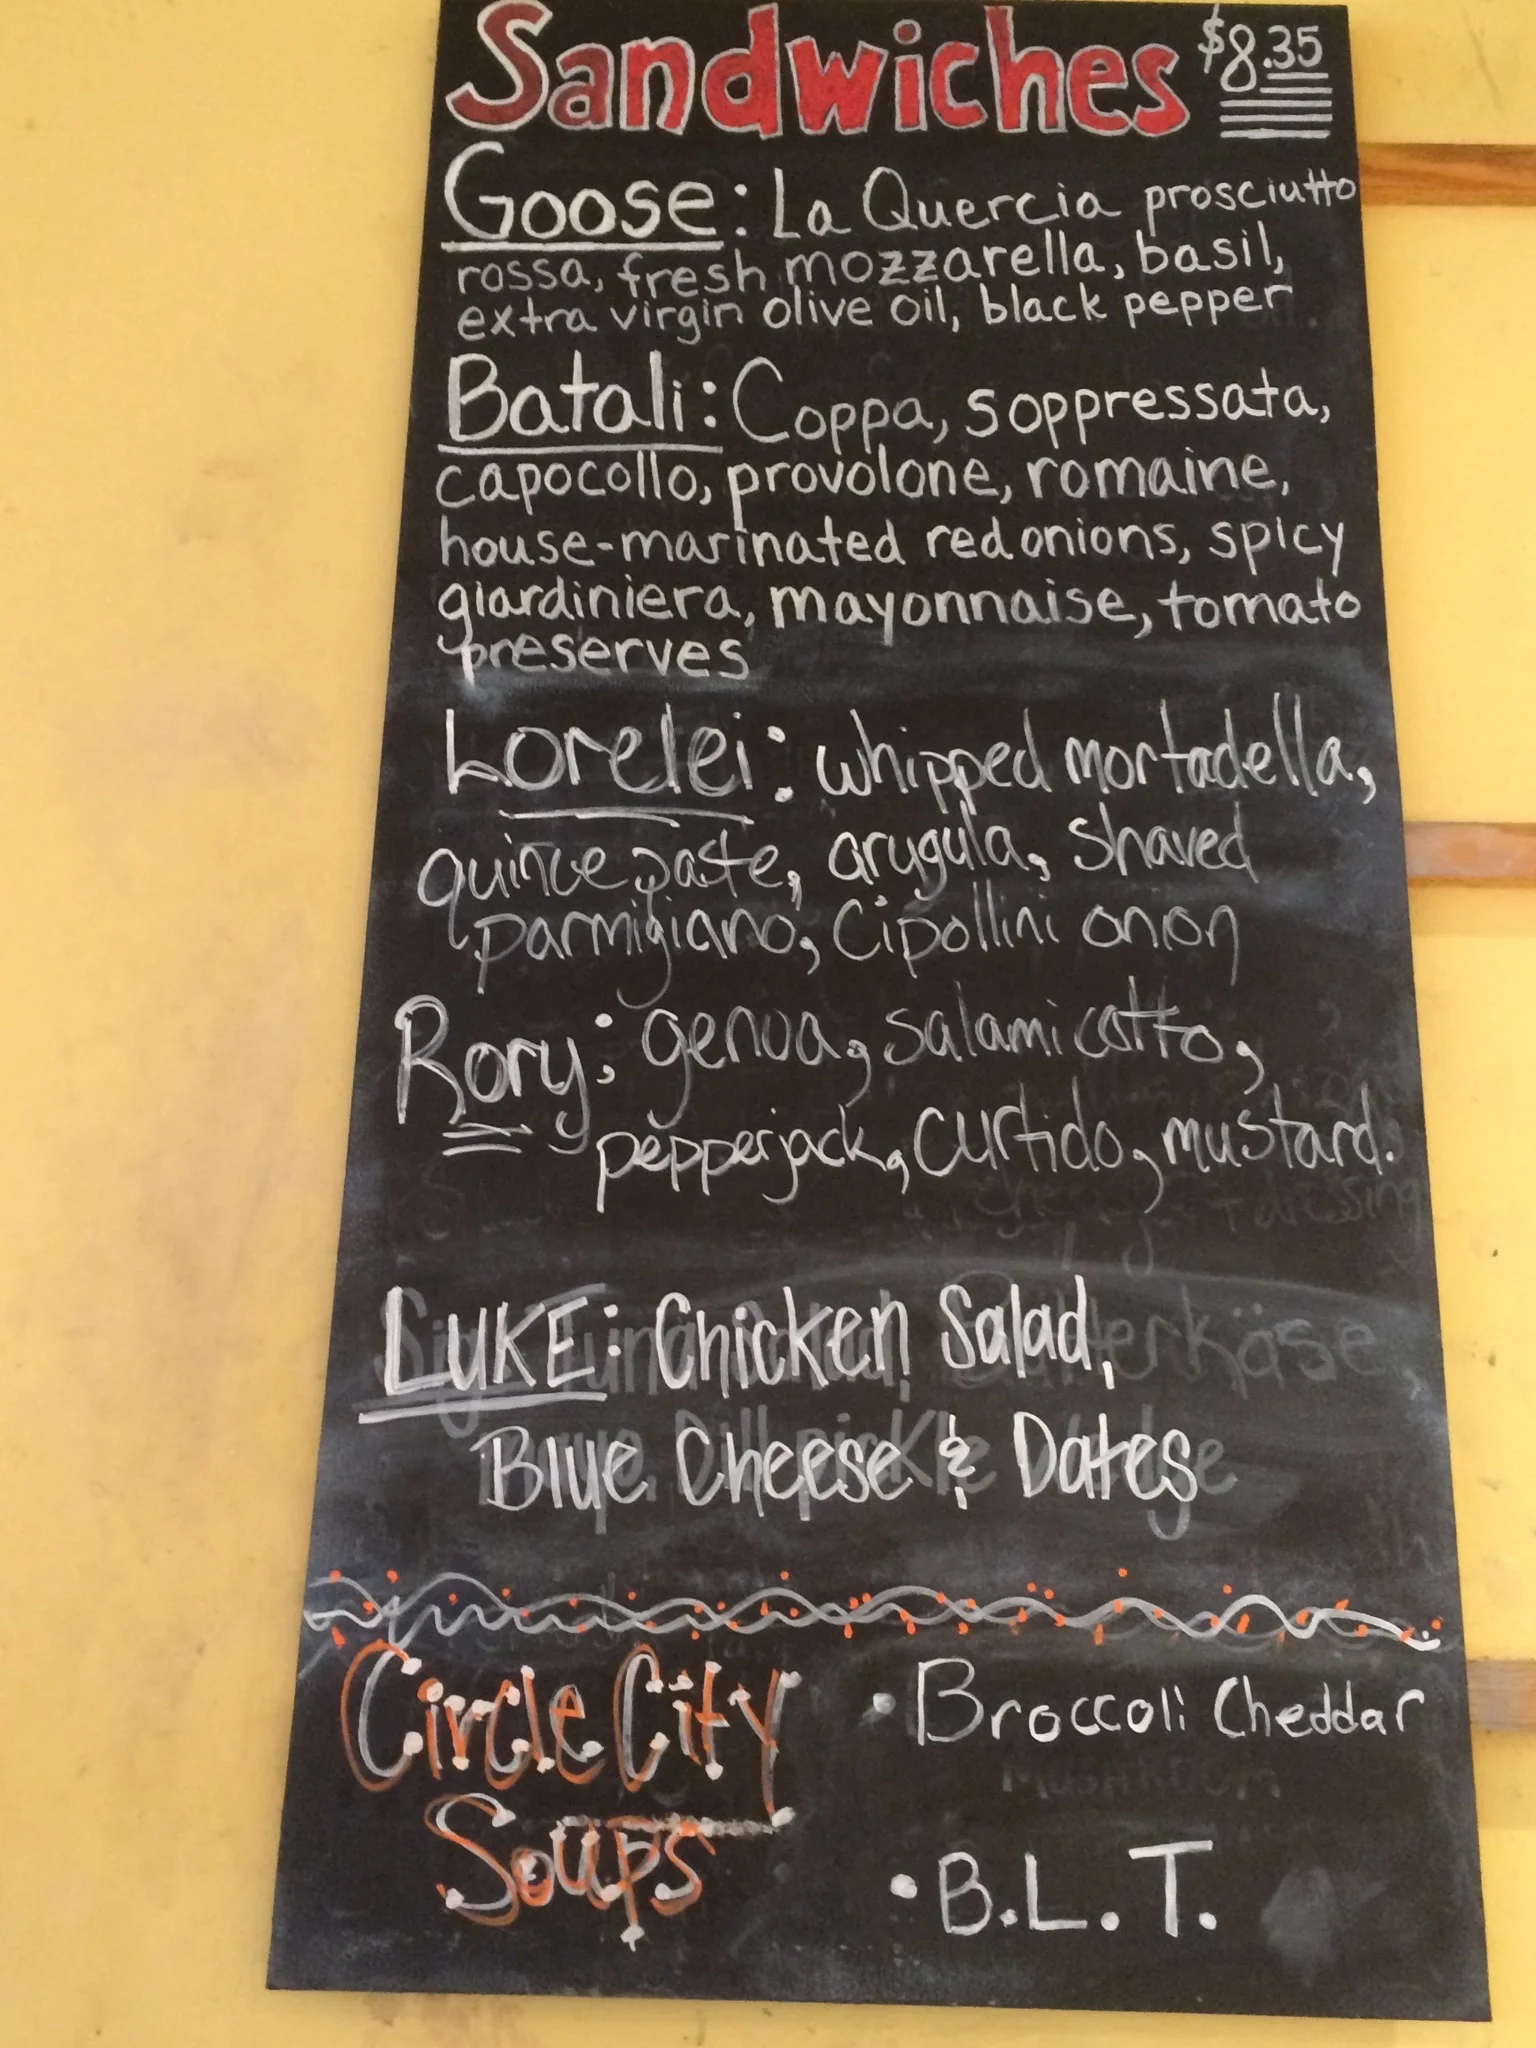 Sandwiches $8.35
Goose: La Quercia prosciutto
rossa, fresh mozzarella, basil,
extra virgin olive oil, black pepper
Batali: Coppa, soppressata,
capocollo, provolone, romaine,
house-marinated red onions, spicy
giardiniera, mayonnaise, tomato
preserves
Lorelei: whipped mortadella,
quince paste, arugula, shaved
parmigiano, Cipollini onion
Rory: genoa, salami cotto,
pepperjack, curtido, mustard.
dressing
LUKE: Chicken Salad,
Blue Cheese & Dates
Circle City
Soups
• Broccoli Cheddar
MUSHROOM
• B.L.T.